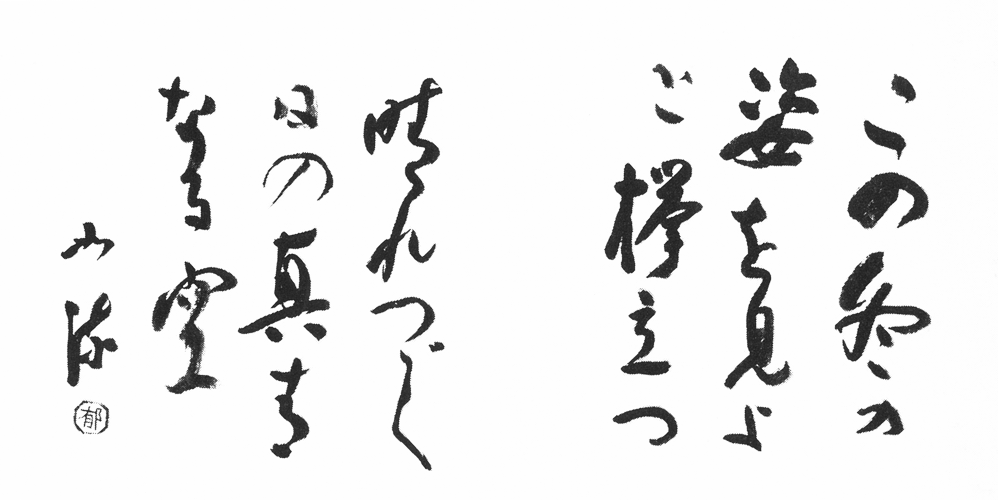 この冬の
姿を見よ
と欅立つ
晴れつづく
日の真青
なる空
郁